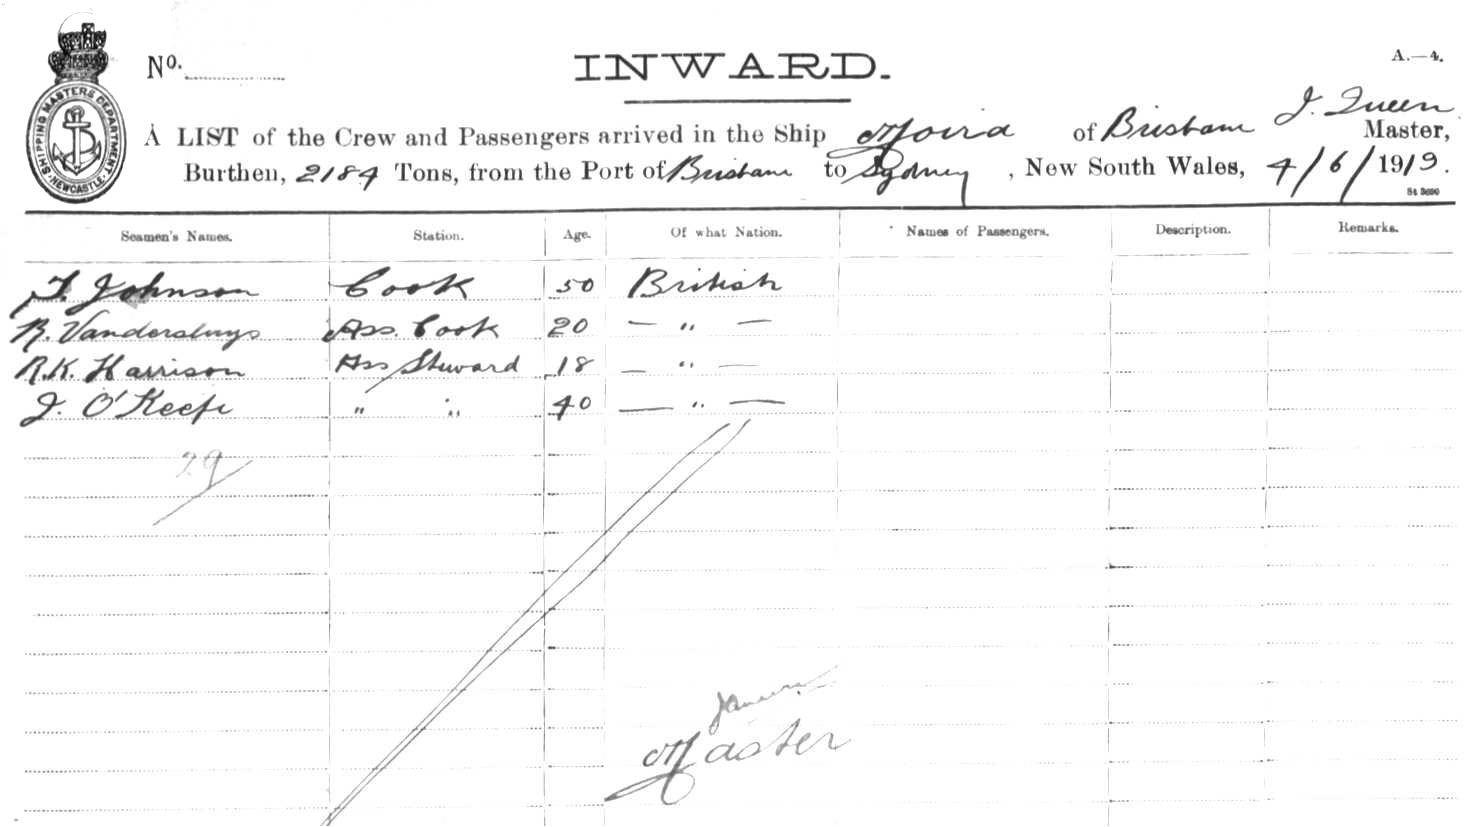 No. INWARD. A.—4.
SHIPPING MASTERS DEPARTMENT. NEWCASTLE.
J. Queen
A LIST of the Crew and Passengers arrived in the Ship Moira of Brisbane Master,
Burthen, 2184 Tons, from the Port of Brisbane to Sydney, New South Wales, 4/6/1919.
St 3600
Seamen's Names. Station. Age. Of what Nation. Names of Passengers. Description. Remarks.
T. Johnson Cook 50 British
R. Vandersluys Ass. Cook 20 — " —
R.K. Harrison Ass Steward 18 — " —
J. O'Keefe " " 40 — " —
29
Master